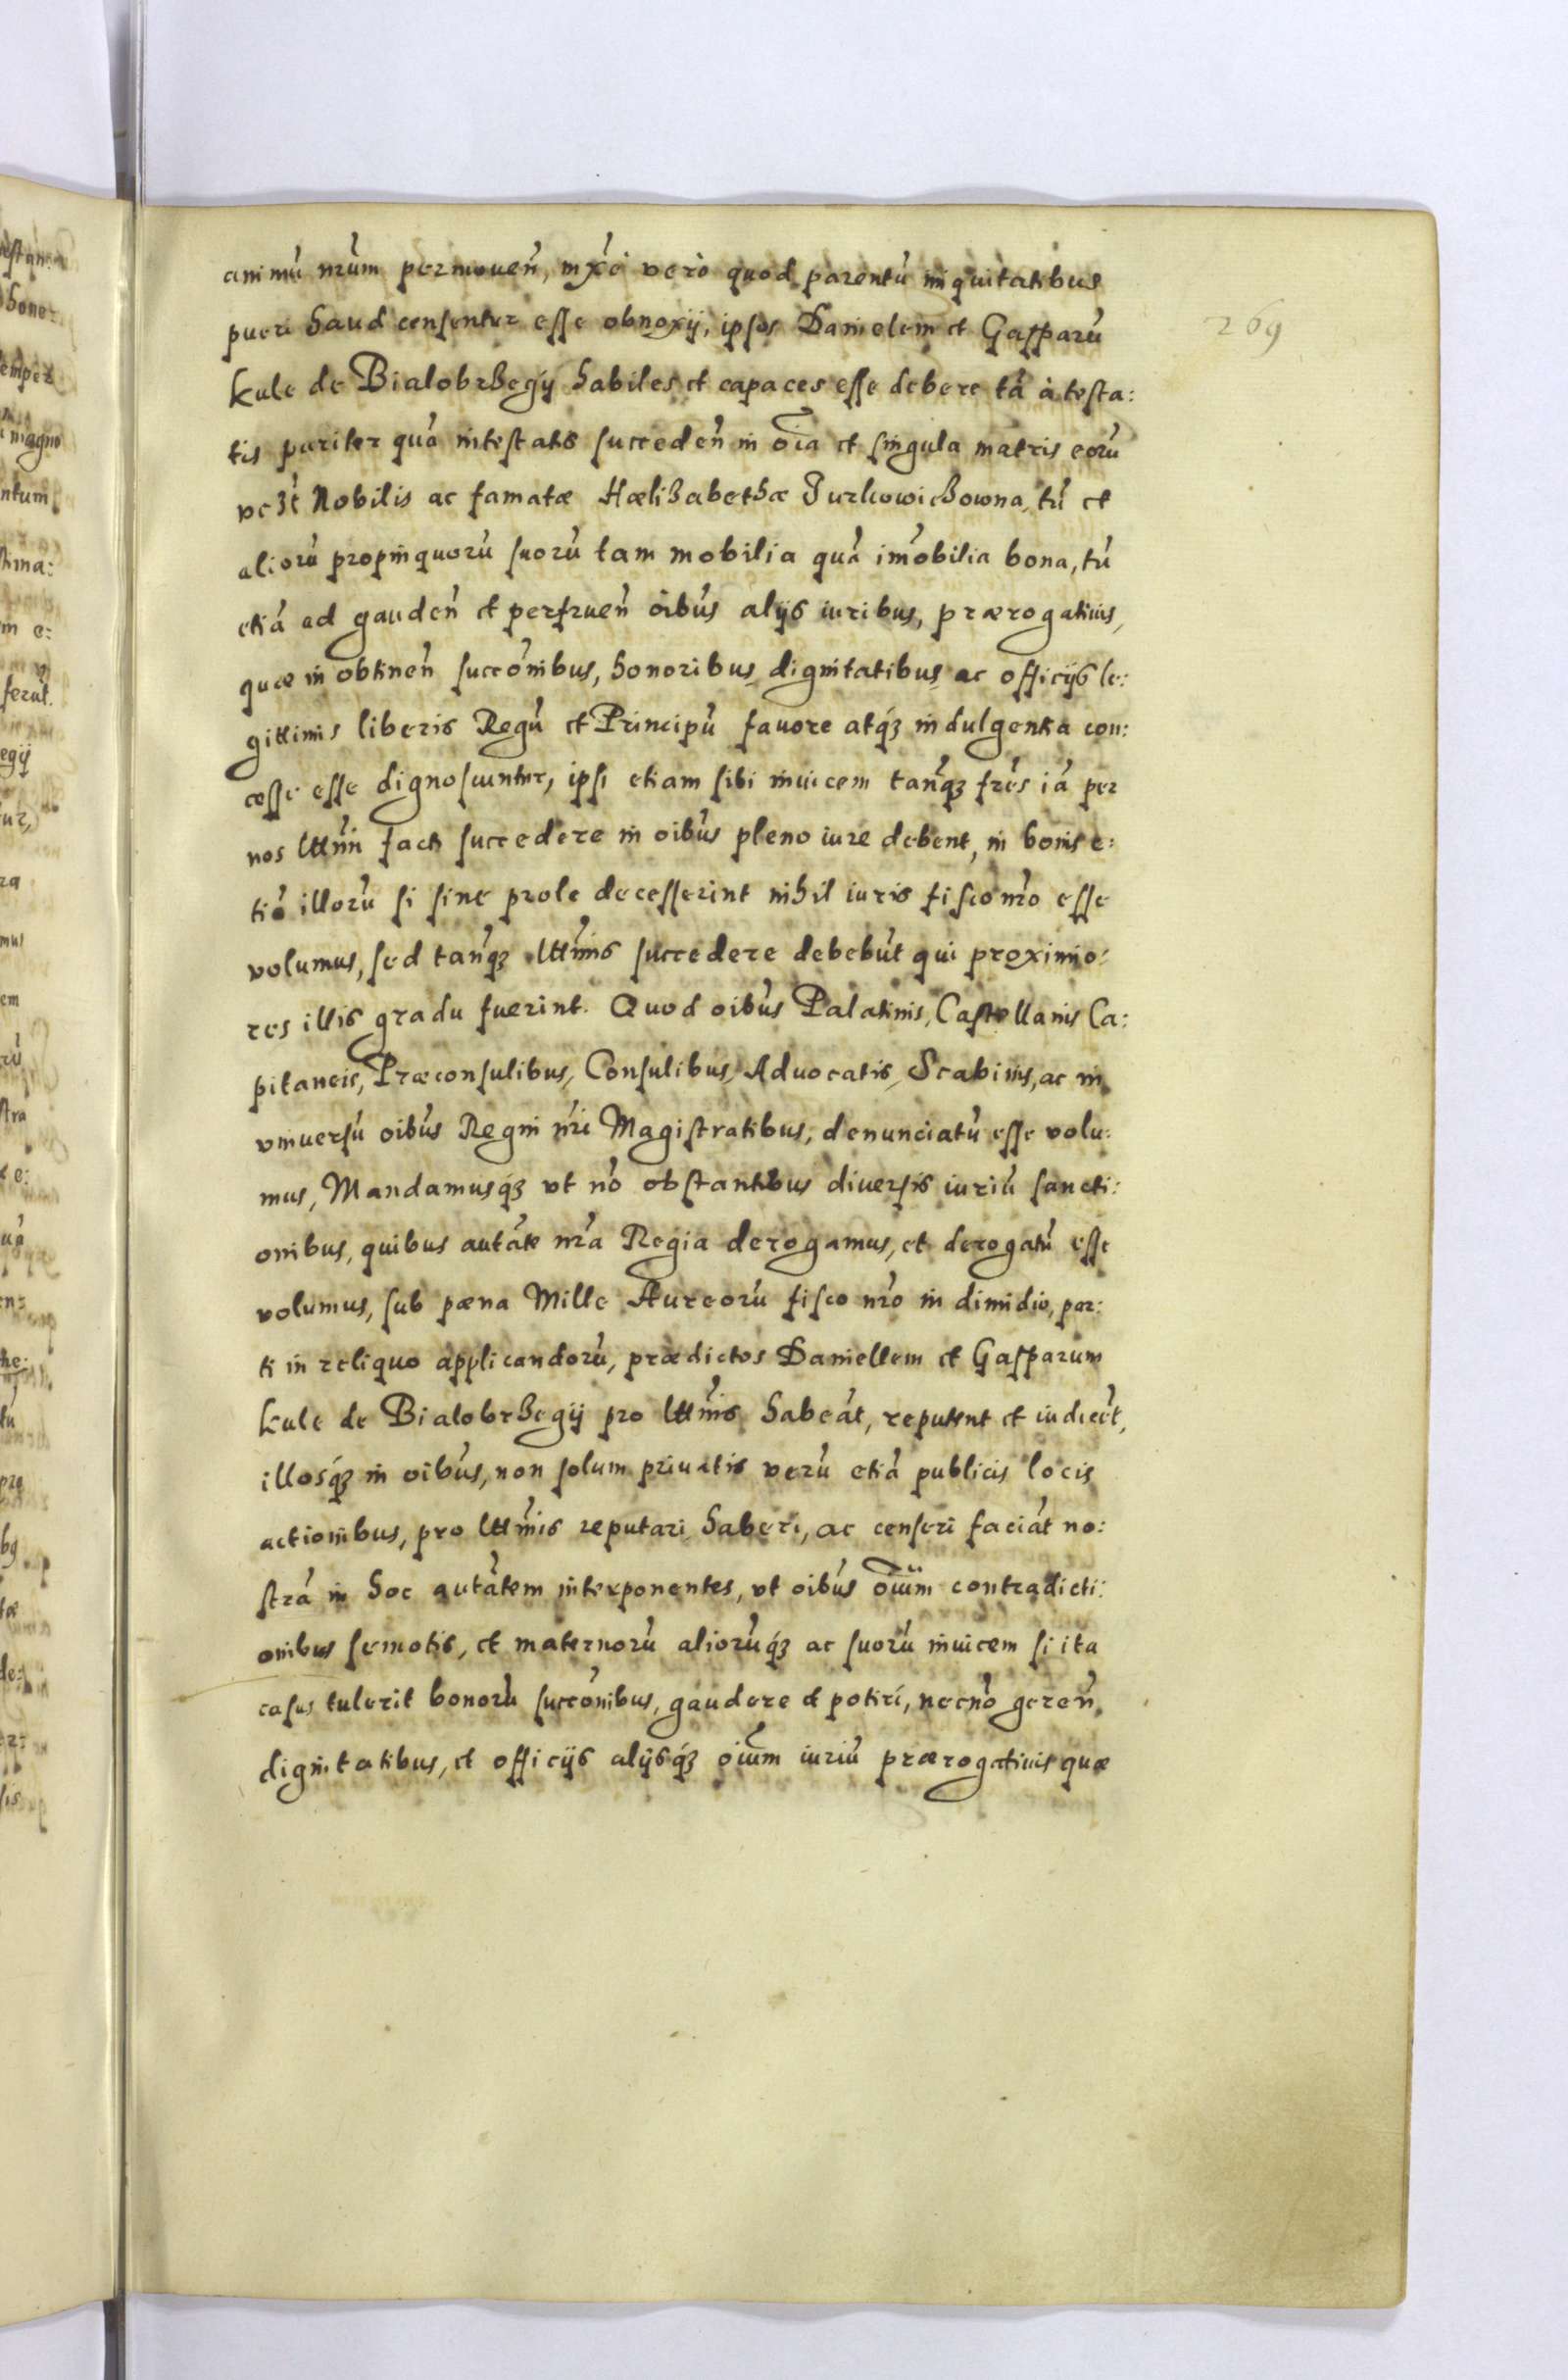 269
animū nr̄um permouen̄, mx̄e vero quod parentū iniquitatibus
pueri haud censentur esse obnoxij, ipsos Danielem et Gasparū
kule de Bialobrhegij habiles et capaces esse debere tā à testa:
tis pariter quā intestatis succeden̄ in oīa et singula matris eorū
Nobilis ac famatæ Hælizabethæ Jurkowichowna, tū et
aliorū propinquorū suorū tam mobilia quā im̄obilia bona, tū
etiā ad gauden̄ et perfruen̄ oībus alijs iuribus, prærogatiuis,
quæ in obtinen̄ succōnibus, honoribus dignitatibus ac officijs le:
gittimis liberis Regū et Principū fauore atq́ꝫ indulgentia con:
cesse esse dignoscuntur, ipsi etiam sibi inuicem tanq̄ꝫ frēs iā per
nos ltt̄mi facti succedere in oībus pleno iure debent, in bonis e:
tiā illorū si sine prole decesserint nihil iuris fisco nr̄o esse
volumus, sed tanq̄ꝫ ltt̄mis succedere debebūt qui proximio:
res illis gradu fuerint. Quod oībus Palatinis, Castellanis Ca:
pitaneis, Præconsulibus, Consulibus, Aduocatis, Scabinis, ac in
vniuersū oībus Regni nr̄i Magistratibus, denunciatū esse volu:
mus, Mandamusq́ꝫ vt nō obstantibus diuersis iuriū sancti:
onibus, quibus autāte nr̄a Regia derogamus, et derogatū esse
volumus, sub pæna Mille Aureorū fisco nr̄o in dimidio, par:
ti in reliquo applicandorū, prædictos Daniellem et Gasparum
kule de Bialobrhegij pro ltt̄mis habeāt, reputent et iudicēt,
illosq́ꝫ in oībus, non solum priuatis verū etiā publicis locis
actionibus, pro ltt̄mis reputari haberi, ac censeri faciāt no:
strā in hoc autātem interponentes, vt oībus oīum contradicti:
onibus semotis, et maternorū aliorūq́ꝫ ac suorū inuicem si ita
casus tulerit bonorū succōnibus, gaudere et potiri, necnō geren̄
dignitatibus, et officijs alijsq́ꝫ oīum iuriū prærogatiuis quæ